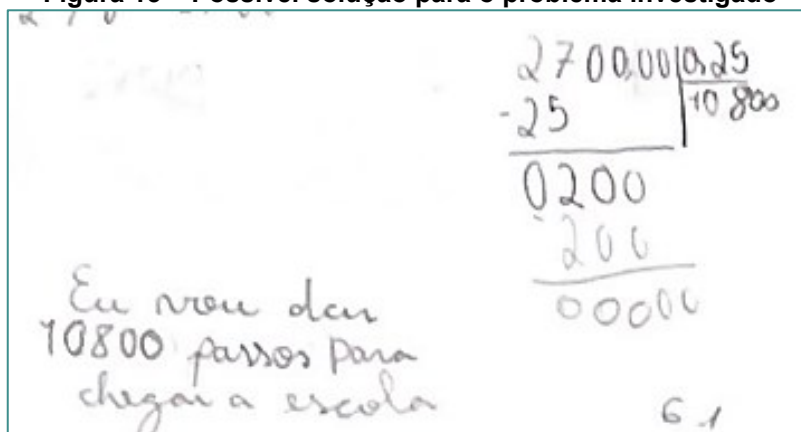 Figura 10 – Possível solução para o problema investigado
2700,00 0,25
-25 10800
0200
200
00000
Eu vou dar
10800 passos para
chegar a escola
6.1